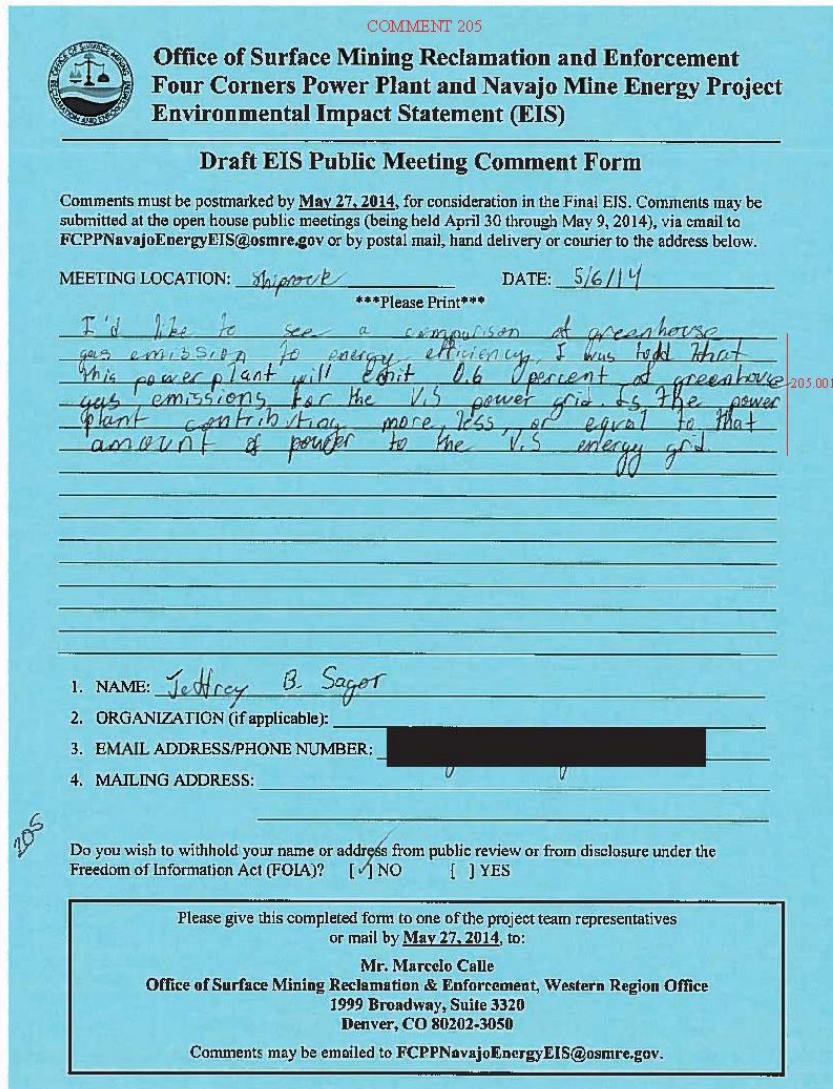 COMMENT 205
Office of Surface Mining Reclamation and Enforcement
Four Corners Power Plant and Navajo Mine Energy Project
Environmental Impact Statement (EIS)
Draft EIS Public Meeting Comment Form
Comments must be postmarked by May 27, 2014, for consideration in the Final EIS. Comments may be
submitted at the open house public meetings (being held April 30 through May 9, 2014), via email to
FCPPNavajoEnergyEIS@osmre.gov or by postal mail, hand delivery or courier to the address below.
MEETING LOCATION: Shiprock DATE: 5/6/14
***Please Print***
I'd like to see a comparison of greenhouse
gas emission to energy efficiency. I was todd that
this power plant will emit 0.6 percent of greenhouse
gas emissions for the U.S power grid. Is the power
plant contributing more, less, or equal to that
amount of power to the U.S energy grid.
205.001
1. NAME: Jeffrey B. Sagor
2. ORGANIZATION (if applicable):
3. EMAIL ADDRESS/PHONE NUMBER:
4. MAILING ADDRESS:
205
Do you wish to withhold your name or address from public review or from disclosure under the
Freedom of Information Act (FOIA)? [✓] NO [ ] YES
Please give this completed form to one of the project team representatives
or mail by May 27, 2014, to:
Mr. Marcelo Calle
Office of Surface Mining Reclamation & Enforcement, Western Region Office
1999 Broadway, Suite 3320
Denver, CO 80202-3050
Comments may be emailed to FCPPNavajoEnergyEIS@osmre.gov.